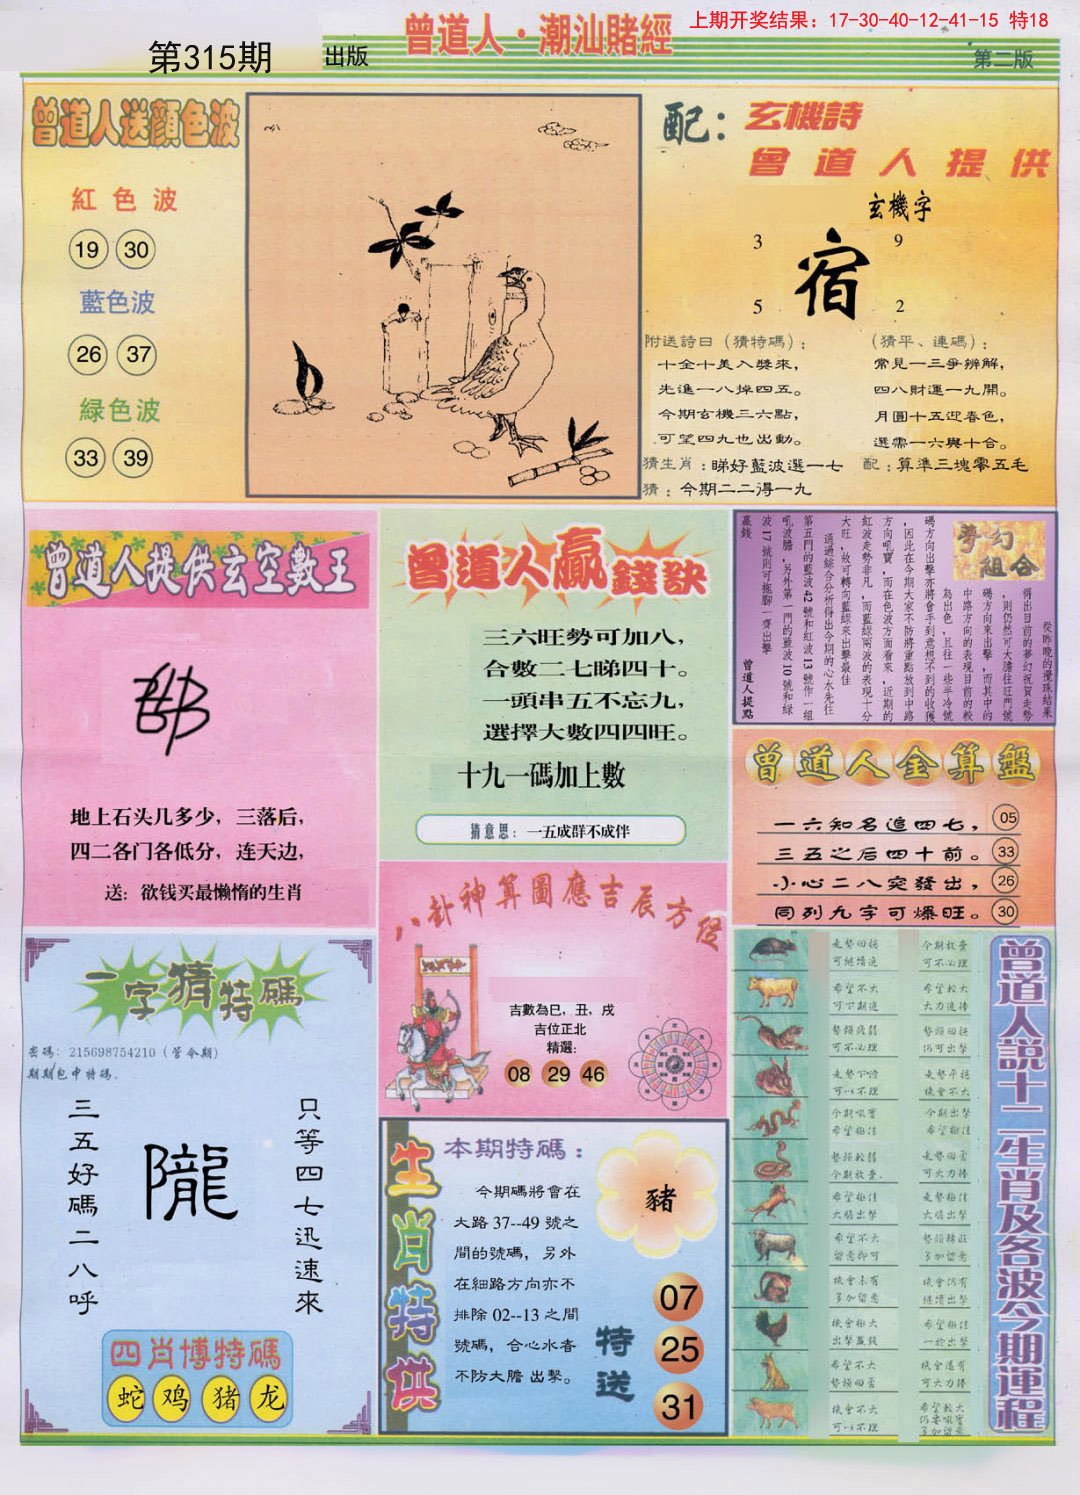 上期开奖结果：17-30-40-12-41-15 特18
第315期
出版
曾道人·潮汕賭經
第二版
曾道人送顏色波
紅色波
19 30
藍色波
26 37
緑色波
33 39
配：
玄機詩
曾道人提供
玄機字
3 9
宿
5 2
附送詩日（猜特碼）；
十全十美入獎來，
先進一八掉四五。
今期玄機三六點，
可望四九也出動。
（猜平、連碼）；
常見一三爭辨解，
四八財運一九開。
月圓十五迎春色，
選需一六與十合。
猜生肖：睇好藍波選一七
配：算準三塊零五毛
猜：今期二二得一九
曾道人提供玄空數王
地上石头几多少，三落后，
四二各门各低分，连天边，
送：欲钱买最懒惰的生肖
曾道人贏錢訣
三六旺勢可加八，
合數二七睇四十。
一頭串五不忘九，
選擇大數四四旺。
十九一碼加上數
猜意思：一五成群不成伴
夢幻組合
從昨晚的攪珠結果
得出目前的夢幻祝賀走勢
，則仍然可大膽往旺門號
碼方向來出擊，而其中的
中路方向的表現目前的較
為出色，且往一些半冷號
碼方向出擊亦將會手到意想不到的收獲
，因此在今期大家不防將重點放到中路
方向吼寶，而在色波方面看來，近期的
紅波走勢非凡，而藍綠兩波的表現十分
大旺，故可轉向藍綠來出擊最佳
通過綜合分析得出今期的心水先往
第五門的藍波42號和紅波13號作一組
吼波膽，另外第一門的藍波10號和綠
波17號則可拖腳一齊出擊
贏錢
曾道人提點
曾道人金算盤
一六知名追四七，05
三五之后四十前。33
小心二八突發出，26
同列九字可爆旺。30
八卦神算圖應吉辰方位
吉數為巳，丑，戌
吉位正北
精選：
08 29 46
一字猜特碼
密碼：215698754210（管今期）
期期包中特碼。
三五好碼二八呼
隴
只等四七迅速來
四肖博特碼
蛇 鸡 猪 龙
生肖特供
本期特碼：
今期碼將會在
大路 37--49 號之
間的號碼，另外
在細路方向亦不
排除 02--13 之間
號碼，合心水者
不防大膽出擊。
豬
特送
07
25
31
走勢回穩
可繼續追
今期放棄
可不必理
希望不大
可下期追
希望較大
大力追捧
勢頭疲弱
可不必理
勢頭回穩
仍可出擊
走勢下滑
可以不理
走勢平穩
機會不大
今期吼寶
希望極佳
今期出擊
希望極佳
勢頭較弱
今期放棄
走勢回勇
可大力捧
希望極佳
大膽出擊
走勢極佳
大膽出擊
希望不大
留意即可
勢頭轉旺
多加留意
機會未有
多加留意
機會仍有
繼續出擊
機會極大
出擊贏錢
希望極佳
一於出擊
希望不大
勢頭回勇
機會還有
可大力捧
機會不大
可以不理
希望較大
仍要吼實
多加留意
曾道人說十二生肖及各波今期運程